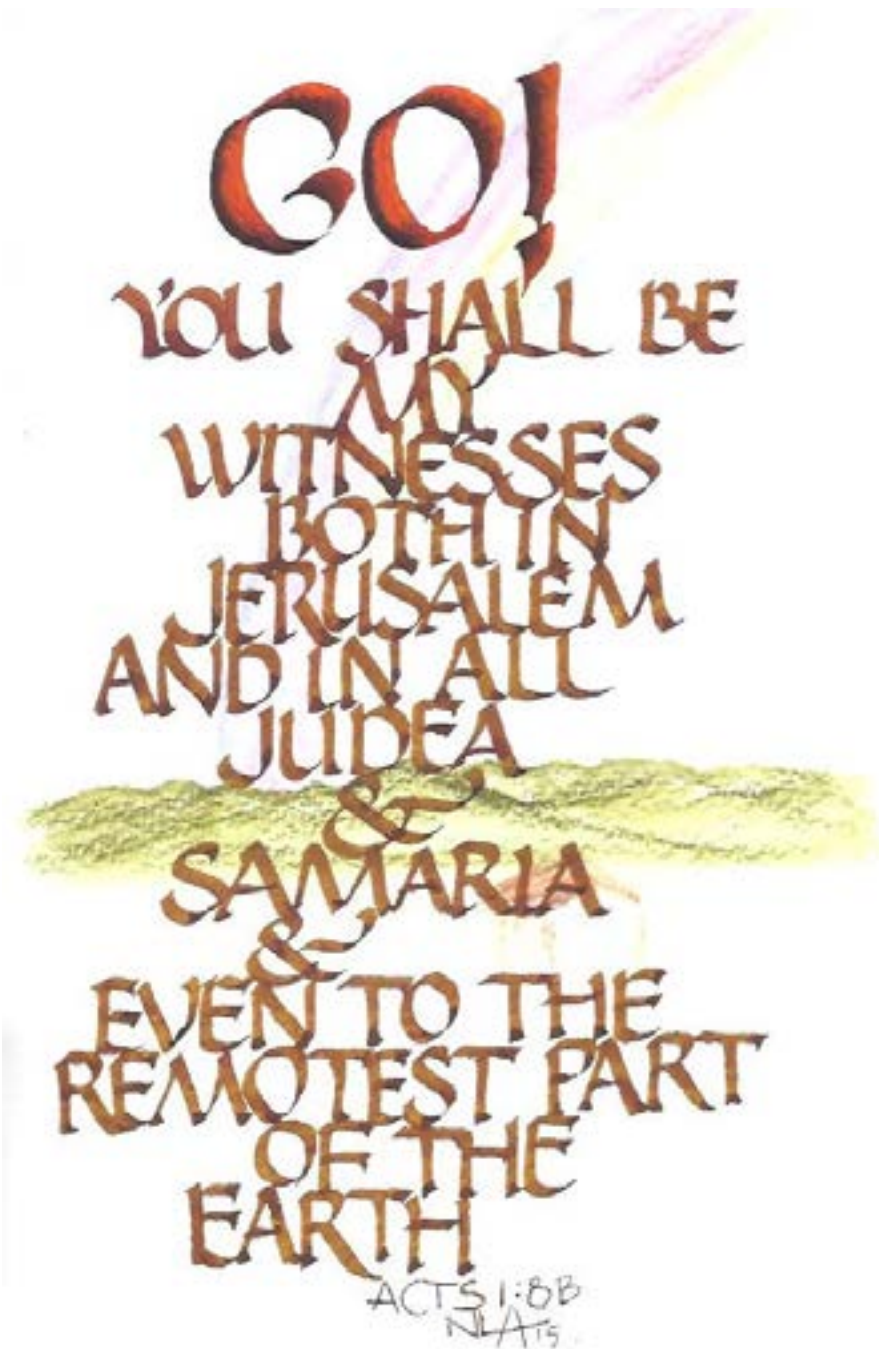 GO!
YOU SHALL BE
MY
WITNESSES
BOTH IN
JERUSALEM
AND IN ALL
JUDEA
&
SAMARIA
&
EVEN TO THE
REMOTEST PART
OF THE
EARTH
ACTS 1:8B
NLA 15